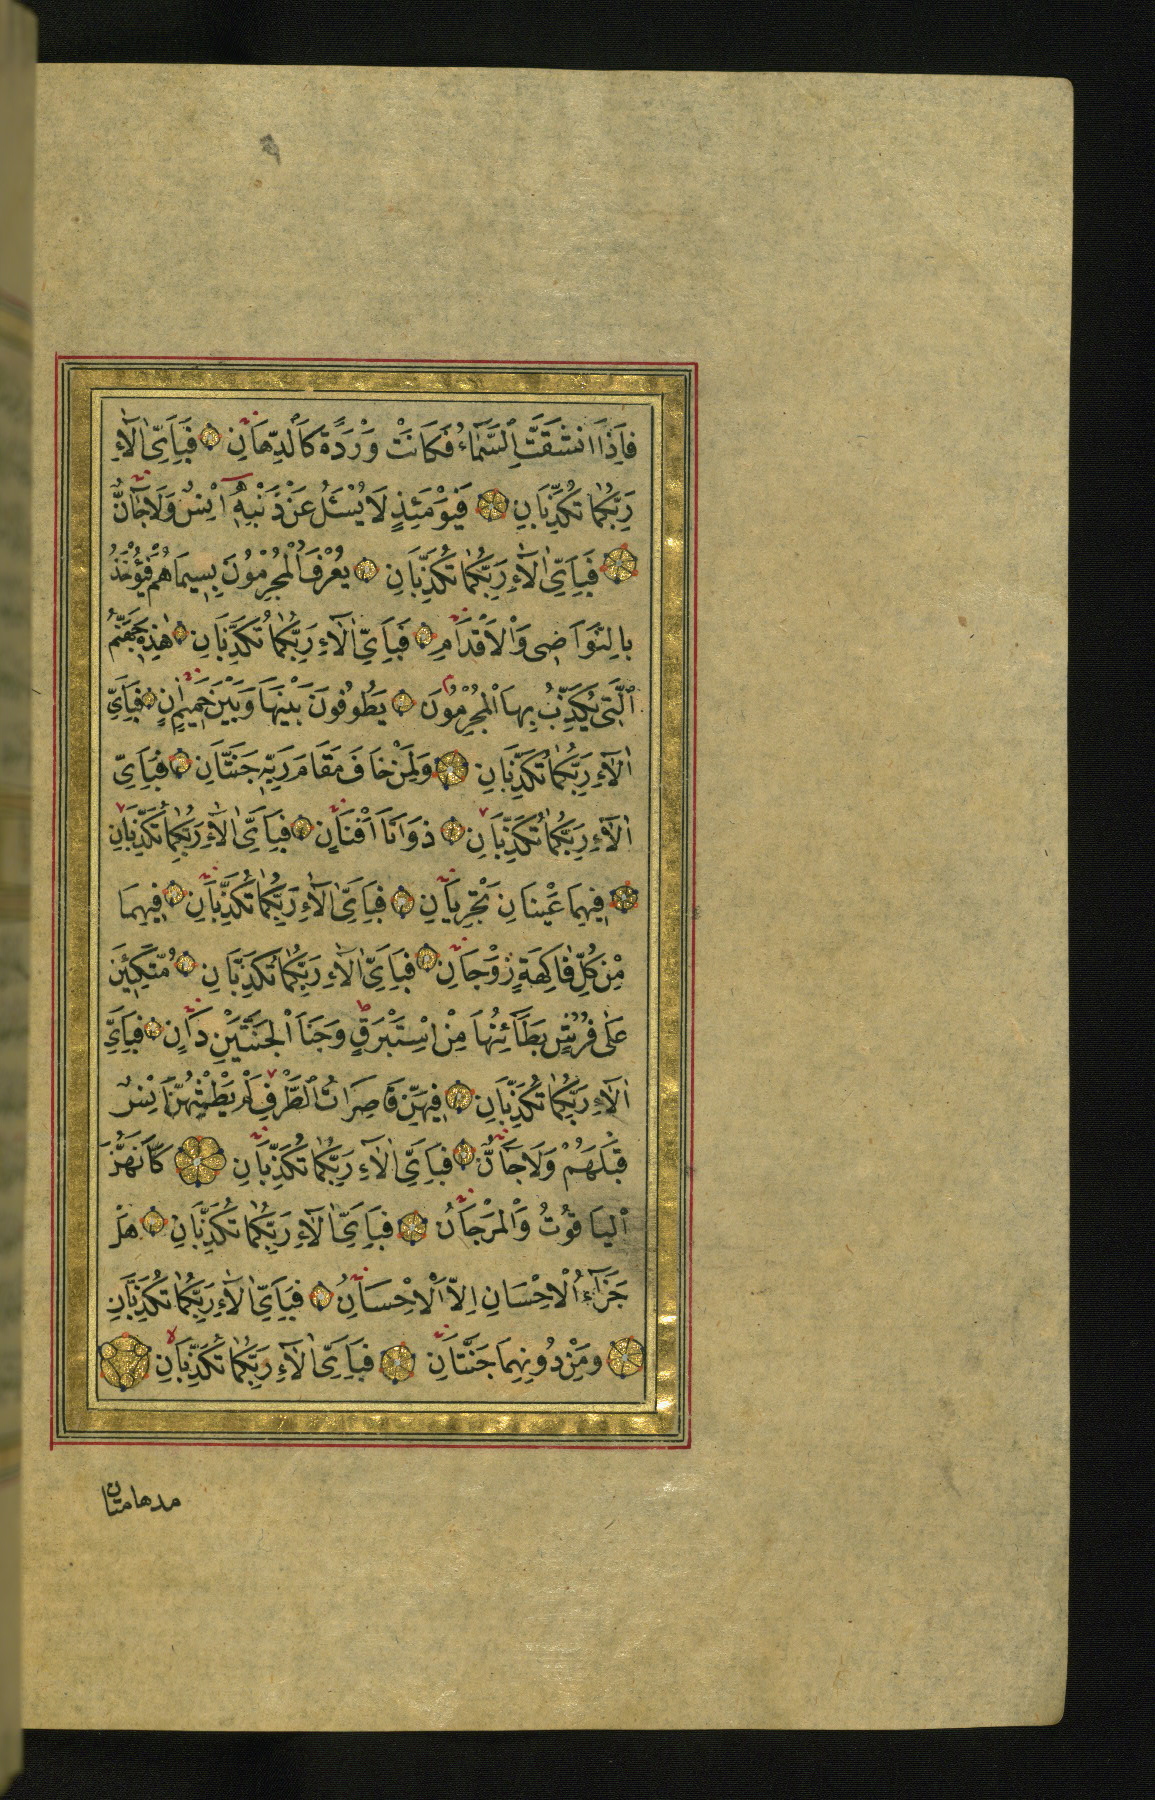 فَاِذَا انْشَقَّتِ السَّمَاءُ فَكَانَتْ وَرْدَةً كَالدِّهَانِ فَبِاَيِّ اٰلَاءِ
رَبِّكُمَا تُكَذِّبَانِ فَيَوْمَئِذٍ لَا يُسْئَلُ عَنْ ذَنْبِهِ اِنْسٌ وَلَا جَانٌّ
فَبِاَيِّ اٰلَاءِ رَبِّكُمَا تُكَذِّبَانِ يُعْرَفُ الْمُجْرِمُونَ بِسِيمَاهُمْ فَيُؤْخَذُ
بِالنَّوَاصِى وَالْاَقْدَامِ فَبِاَيِّ اٰلَاءِ رَبِّكُمَا تُكَذِّبَانِ هٰذِهِ جَهَنَّمُ
الَّتِى يُكَذِّبُ بِهَا الْمُجْرِمُونَ يَطُوفُونَ بَيْنَهَا وَبَيْنَ حَمِيمٍ اٰنٍ فَبِاَيِّ
اٰلَاءِ رَبِّكُمَا تُكَذِّبَانِ وَلِمَنْ خَافَ مَقَامَ رَبِّهِ جَنَّتَانِ فَبِاَيِّ
اٰلَاءِ رَبِّكُمَا تُكَذِّبَانِ ذَوَاتَا اَفْنَانٍ فَبِاَيِّ اٰلَاءِ رَبِّكُمَا تُكَذِّبَانِ
فِيهِمَا عَيْنَانِ تَجْرِيَانِ فَبِاَيِّ اٰلَاءِ رَبِّكُمَا تُكَذِّبَانِ فِيهِمَا
مِنْ كُلِّ فَاكِهَةٍ زَوْجَانِ فَبِاَيِّ اٰلَاءِ رَبِّكُمَا تُكَذِّبَانِ مُتَّكِئِينَ
عَلٰى فُرُشٍ بَطَائِنُهَا مِنْ اِسْتَبْرَقٍ وَجَنَا الْجَنَّتَيْنِ دَانٍ فَبِاَيِّ
اٰلَاءِ رَبِّكُمَا تُكَذِّبَانِ فِيهِنَّ قَاصِرَاتُ الطَّرْفِ لَمْ يَطْمِثْهُنَّ اِنْسٌ
قَبْلَهُمْ وَلَا جَانٌّ فَبِاَيِّ اٰلَاءِ رَبِّكُمَا تُكَذِّبَانِ كَاَنَّهُنَّ
الْيَاقُوتُ وَالْمَرْجَانُ فَبِاَيِّ اٰلَاءِ رَبِّكُمَا تُكَذِّبَانِ هَلْ
جَزَاءُ الْاِحْسَانِ اِلَّا الْاِحْسَانُ فَبِاَيِّ اٰلَاءِ رَبِّكُمَا تُكَذِّبَانِ
وَمِنْ دُونِهِمَا جَنَّتَانِ فَبِاَيِّ اٰلَاءِ رَبِّكُمَا تُكَذِّبَانِ
مدهامتان